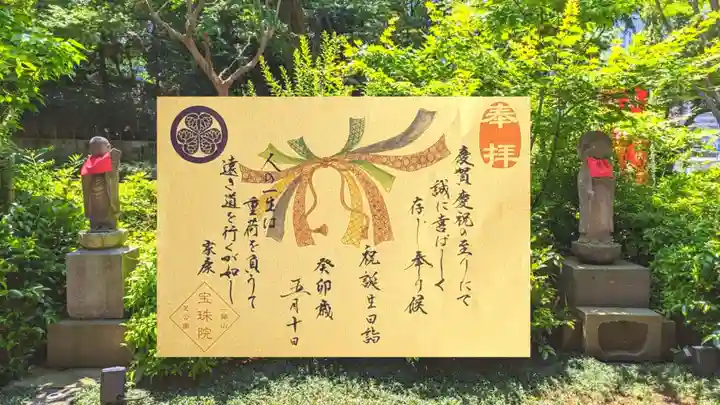 奉拝
慶賀慶祝の至りにて
誠に喜ばしく
存じ奉り候
祝誕生日詣
癸卯歳
五月十日
人の一生は
重荷を負うて
遠き道を行くが如し
家康
宝珠院
芝公園